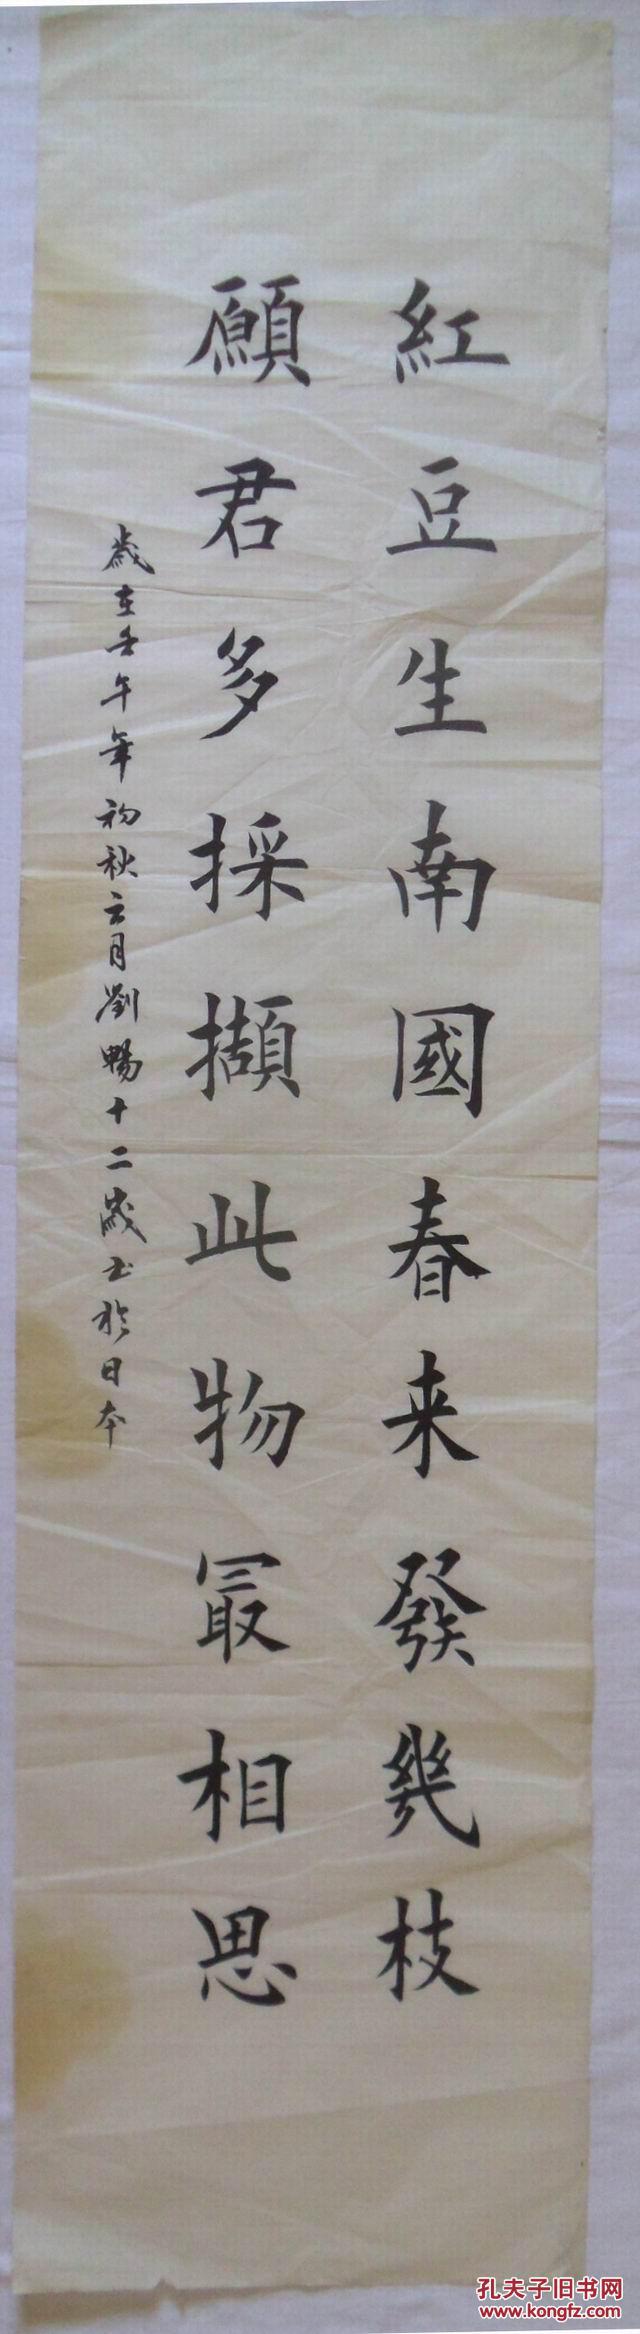 紅豆生南國春来發幾枝
願君多採擷此物最相思
歲在壬午年初秋六月劉暢十二歲书於日本
孔夫子旧书网
www.kongfz.com